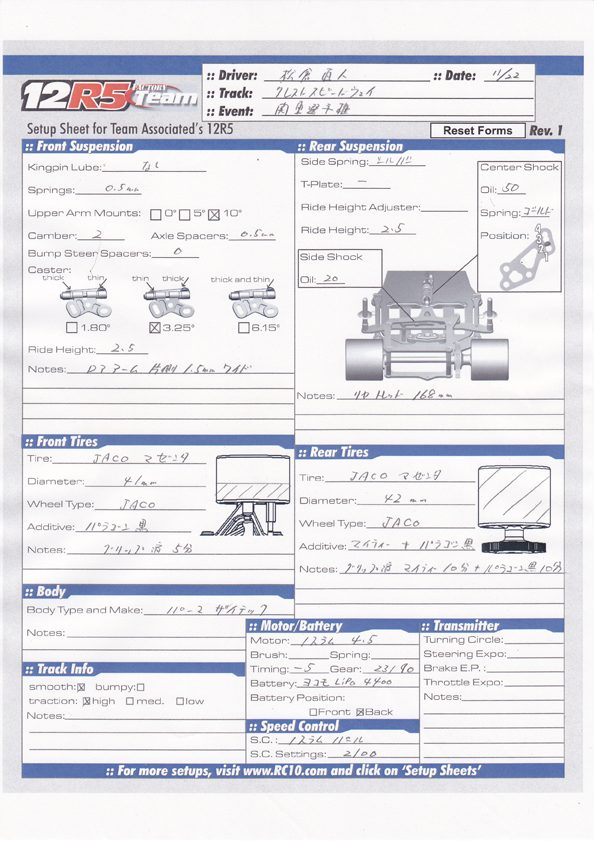 12R5 FACTORY Team
:: Driver: 松倉 直人 :: Date: 11/22
:: Track: クレストスピードウェイ
:: Event: 関東選手権
Setup Sheet for Team Associated's 12R5
Reset Forms Rev. 1
:: Front Suspension
Kingpin Lube: なし
Springs: 0.5mm
Upper Arm Mounts: 0° 5° 10°
Camber: 2 Axle Spacers: 0.5mm
Bump Steer Spacers: 0
Caster:
thick thin thin thick thick and thin
1.80° 3.25° 6.15°
Ride Height: 2.5
Notes: アーム 片側 1.5mm ワイド
:: Rear Suspension
Side Spring:
T-Plate: —
Ride Height Adjuster:
Ride Height: 2.5
Center Shock
Oil: 50
Spring: ゴールド
Position:
4
3
2
1
Side Shock
Oil: 20
Notes: リヤ トレッド 168mm
:: Front Tires
Tire: JACO マゼンタ
Diameter: 41mm
Wheel Type: JACO
Additive: パラゴン 黒
Notes: グリップ剤 5分
:: Rear Tires
Tire: JACO マゼンタ
Diameter: 42mm
Wheel Type: JACO
Additive: マイティー + パラゴン 黒
Notes: グリップ剤 マイティー 10分 + パラゴン黒 10分
:: Body
Body Type and Make:
Notes:
:: Track Info
smooth: bumpy:
traction: high med. low
Notes:
:: Motor/Battery
Motor: ノスラム 4.5
Brush: Spring:
Timing: -5 Gear: 23/90
Battery: ヨコモ Lipo 4400
Battery Position:
Front Back
:: Speed Control
S.C.: ノスラム
S.C. Settings: 2/00
:: Transmitter
Turning Circle:
Steering Expo:
Brake E.P.:
Throttle Expo:
Notes:
:: For more setups, visit www.RC10.com and click on 'Setup Sheets'